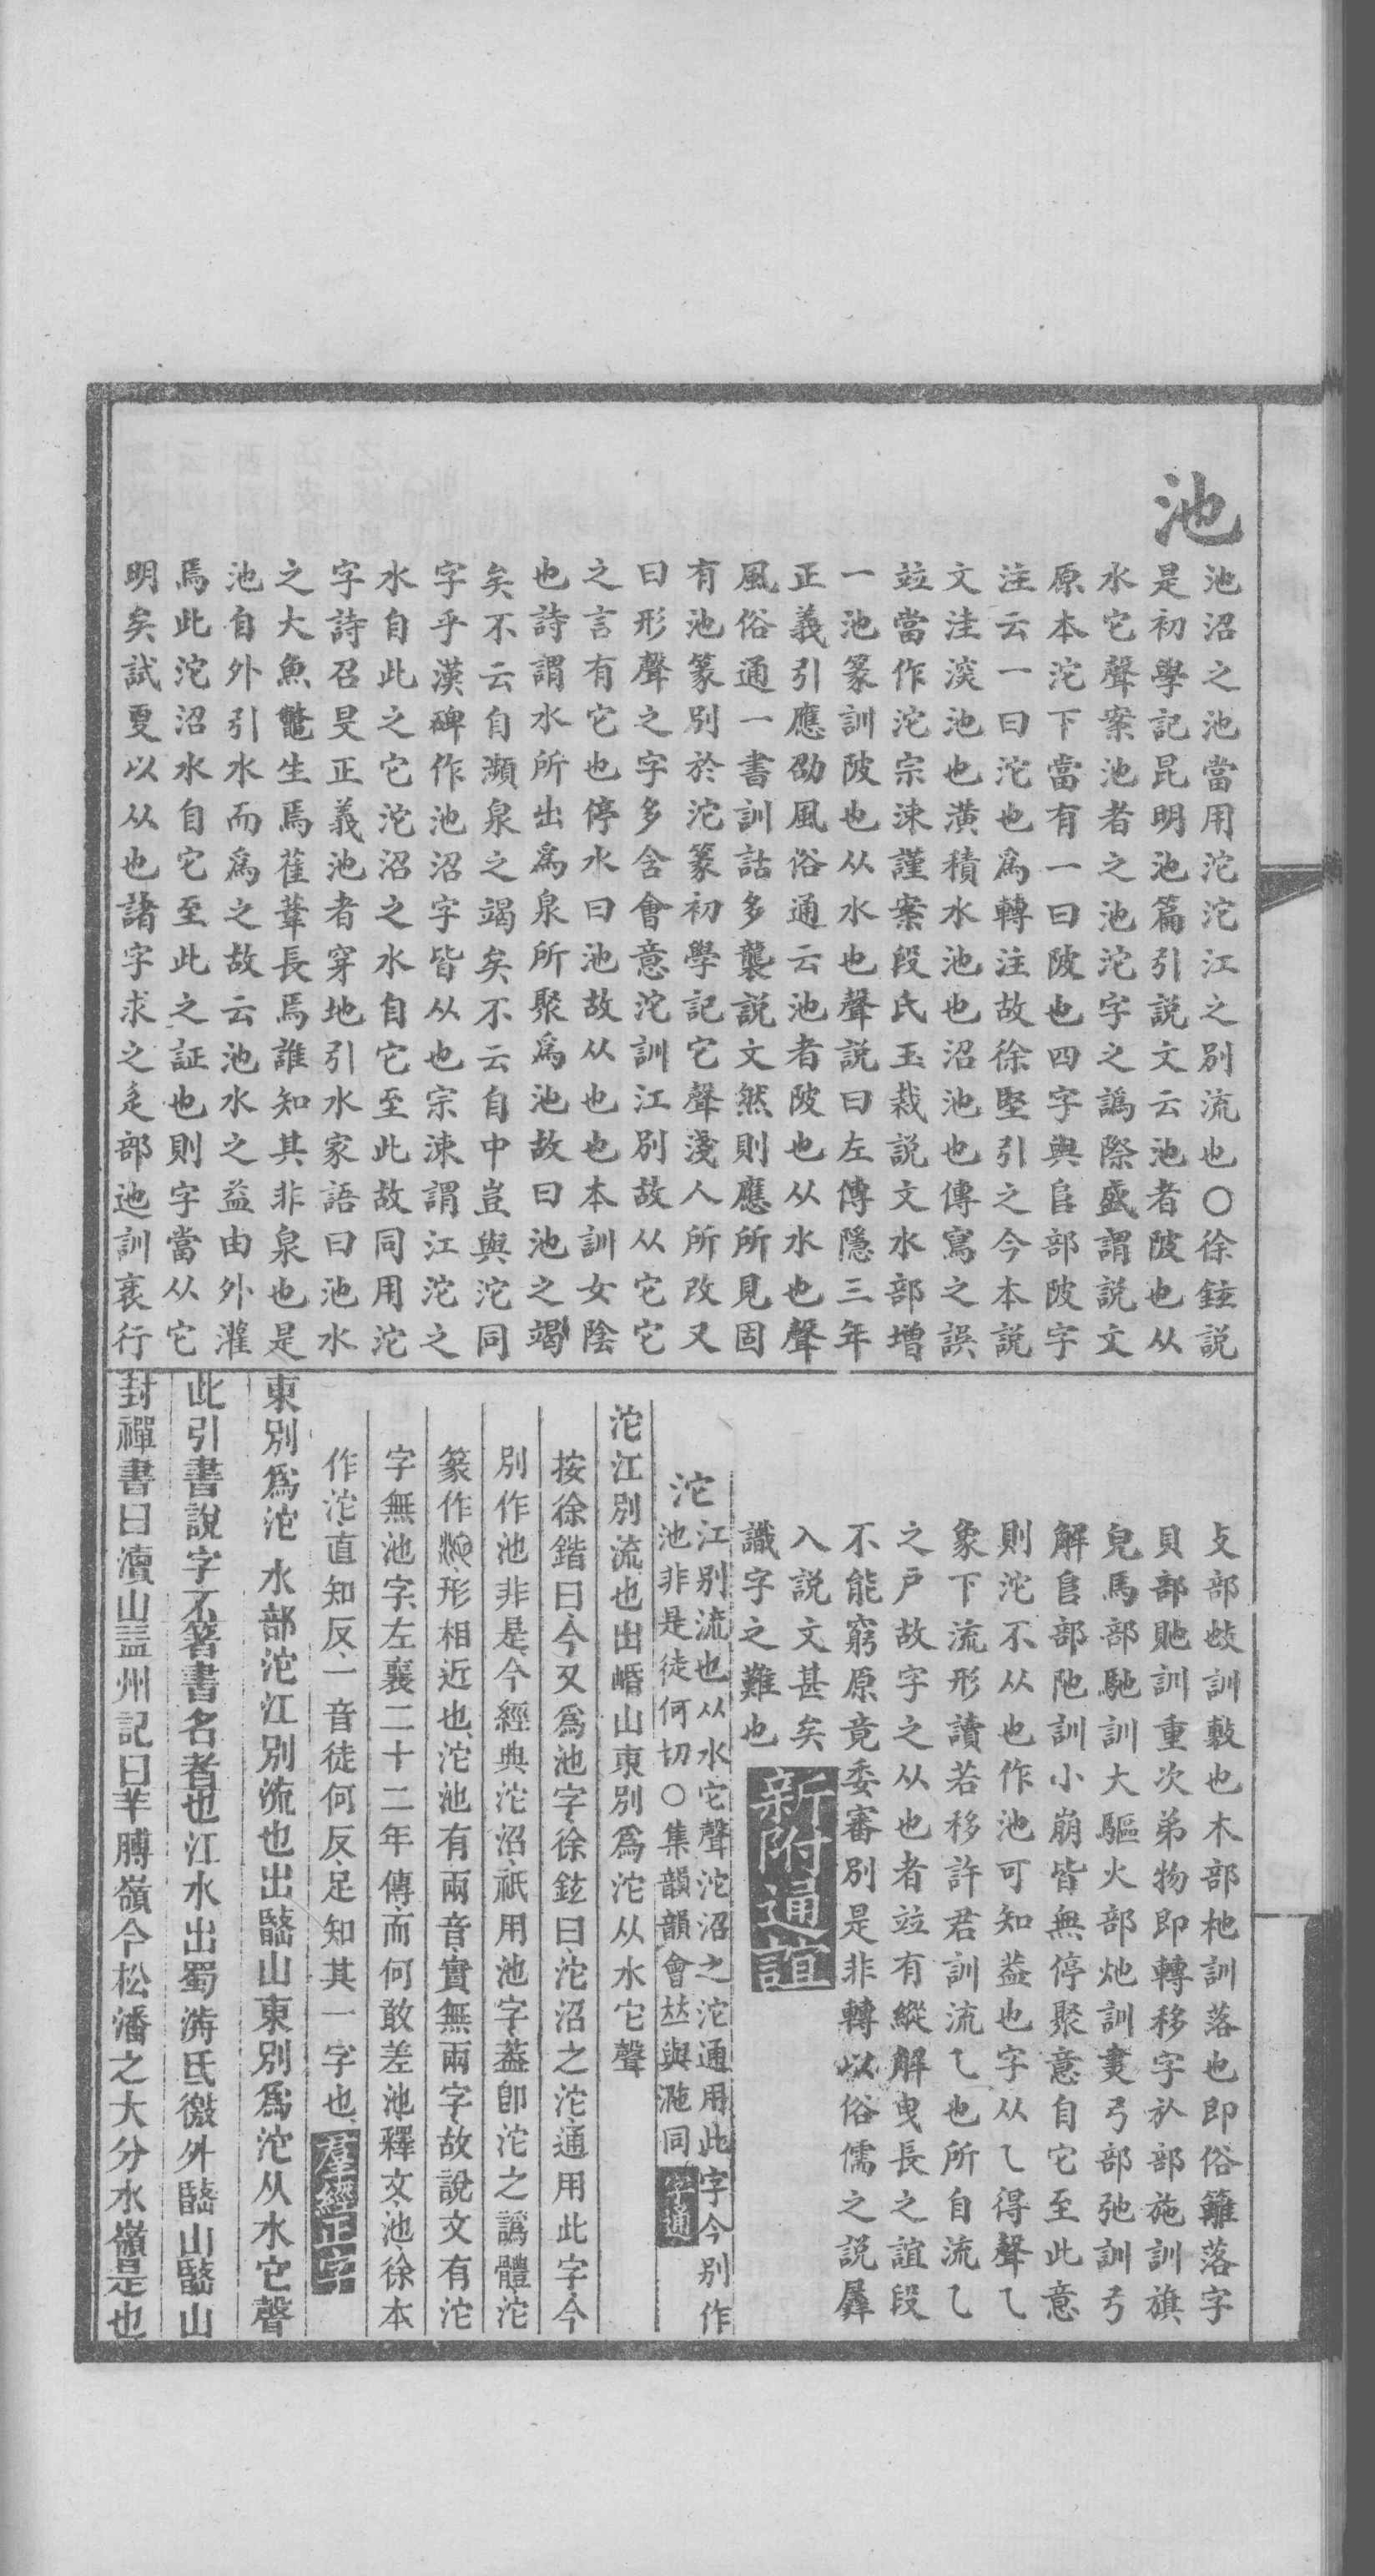 池
池沼之池當用沱沱江之別流也○徐鉉説
是初學記昆明池篇引説文云池者陂也从
水它聲案池者之池沱字之譌際盛謂説文
原本沱下當有一曰陂也四字與𨸏部陂字
注云一曰沱也爲轉注故徐堅引之今本説
文洼淡池也潢積水池也沼池也傳寫之誤
竝當作沱宗涑謹案段氏玉裁説文水部增
一池篆訓陂也从水也聲説曰左傳隱三年
正義引應劭風俗通云池者陂也从水也聲
風俗通一書訓詁多襲説文然則應所見固
有池篆別於沱篆初學記它聲淺人所改又
曰形聲之字多含會意沱訓江別故从它它
之言有它也停水曰池故从也也本訓女陰
也詩謂水所出爲泉所聚爲池故曰池之竭
矣不云自瀕泉之竭矣不云自中豈與沱同
字乎漢碑作池沼字皆从也宗涑謂江沱之
水自此之它沱沼之水自它至此故同用沱
字詩召旻正義池者穿地引水家語曰池水
之大魚鼈生焉萑葦長焉誰知其非泉也是
池自外引水而爲之故云池水之益由外灌
焉此沱沼水自它至此之証也則字當从它
明矣試夏以从也諸字求之辵部迆訓衺行
攴部𢻫訓敷也木部杝訓落也即俗籬落字
貝部貤訓重次弟物即轉移字㫃部施訓旗
皃馬部馳訓大驅火部灺訓㶳弓部弛訓弓
解𨸏部阤訓小崩皆無停聚意自它至此意
則沱不从也作池可知葢也字从乁得聲乁
象下流形讀若移許君訓流乁也所自流乁
之戸故字之从也者竝有縱解曳長之誼段
不能窮原竟委審別是非轉以俗儒之説羼
入説文甚矣
識字之難也 新附通誼
沱 江別流也从水它聲沱沼之沱通用此字今別作
池非是徒何切○集韻韻會竝與𣵺同 字通
沱江別流也出崏山東別爲沱从水它聲
按徐鍇曰今又爲池字徐鉉曰沱沼之沱通用此字今
別作池非是今經典沱沼祇用池字葢卽沱之譌體沱
篆作形相近也沱池有兩音實無兩字故說文有沱
字無池字左襄二十二年傳而何敢差池釋文池徐本
作沱直知反一音徒何反足知其一字也 羣經正字
東別爲沱 水部沱江別流也出𨻻山東別爲沱从水它聲
此引書說字不箸書名者也江水出蜀湔氐徼外𨻻山𨻻山
封禪書曰瀆山益州記曰羊膊嶺今松潘之大分水嶺是也